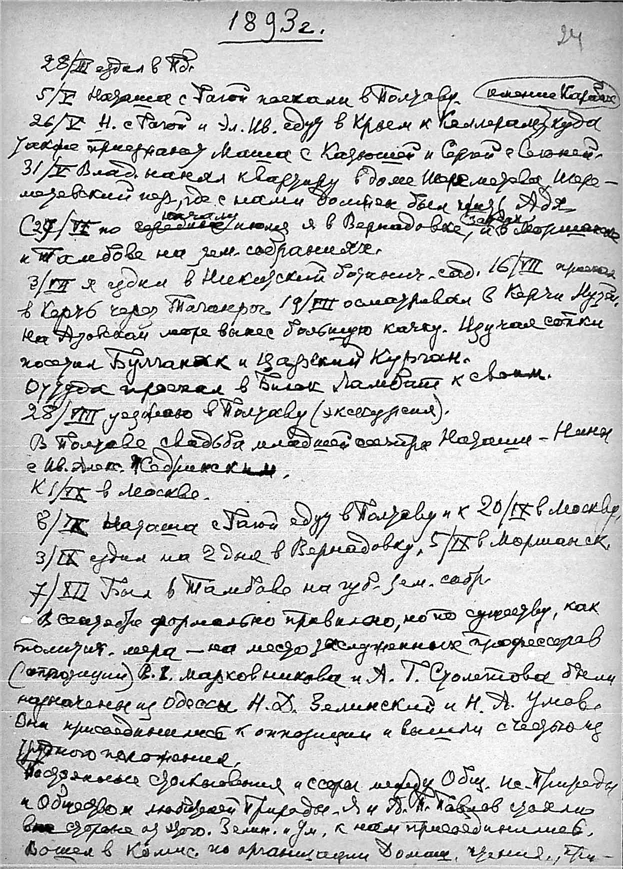 1893 г.
24
28/III ездил в Пб.
5/V Наташа с Гагой поехали в Полтаву. (имение
26/V Н. с Гагой и Ел. Ив. едут в Крым к Келлерам, куда
также приезжают Маша с Катюшей и Сергей с Еленой.
31/V Влад. нанял квартиру в доме Шереметева, Шере-
метевский пер., где с нами
(27/VI по начало июля я в Вернадовке,
и Тамбове на зем. собраниях.
3/VII я ездил в Никитский ботанич. сад. 16/VII проехал
в Керчь через Таганрог 19/VII осматривал в Керчи Музей.
На Азовском море вынес большую качку. Изучая сопки
посетил Булганак и Царский Курган.
Оттуда проехал в Биюк Ламбат к своим.
28/VIII уезжаю в Полтаву (экскурсия).
В Полтаве свадьба младшей сестры Наташи – Нины
с Ив. Алек.
К 1/IX в Москве.
8/IX Наташа с Гагой едут в Полтаву и к 20/IX в Москву,
3/IX ездил на 2 дня в Вернадовку, 5/IX в Моршанск.
7/XII Был в Тамбове на губ. зем. собр.
В сентябре формально правильно, но по существу, как
политич. мера – на место заслуженных профессоров
(оппозиции) В. В. Марковникова и А. Г. Столетова были
назначены из Одессы Н. Д. Зелинский и Н. А. Умов.
Они присоединились к оппозиции и вышли с честью из
трудного положения.
Постоянные столкновения и ссоры между Общ. Ис. Природы
и Обществом любителей Природы. Я и А. П. Павлов стояли
вне Зелин. и Ум. к нам присоединились.
Вошел в Комис. по организации Домаш. чтения., при-